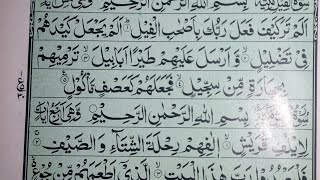 بِسْمِ اللّٰهِ الرَّحْمٰنِ الرَّحِيْمِ
اَلَمْ تَرَ كَيْفَ فَعَلَ رَبُّكَ بِاَصْحٰبِ الْفِيْلِ ۝ اَلَمْ يَجْعَلْ كَيْدَهُمْ
فِيْ تَضْلِيْلٍ ۝ وَّ اَرْسَلَ عَلَيْهِمْ طَيْرًا اَبَابِيْلَ ۝ تَرْمِيْهِمْ
بِحِجَارَةٍ مِّنْ سِجِّيْلٍ ۝ فَجَعَلَهُمْ كَعَصْفٍ مَّاْكُوْلٍ
بِسْمِ اللّٰهِ الرَّحْمٰنِ الرَّحِيْمِ
لِاِيْلٰفِ قُرَيْشٍ ۝ اٖلٰفِهِمْ رِحْلَةَ الشِّتَآءِ وَ الصَّيْفِ
فَلْيَعْبُدُوْا رَبَّ هٰذَا الْبَيْتِ ۝ الَّذِيْٓ اَطْعَمَهُمْ مِّنْ جُوْعٍ